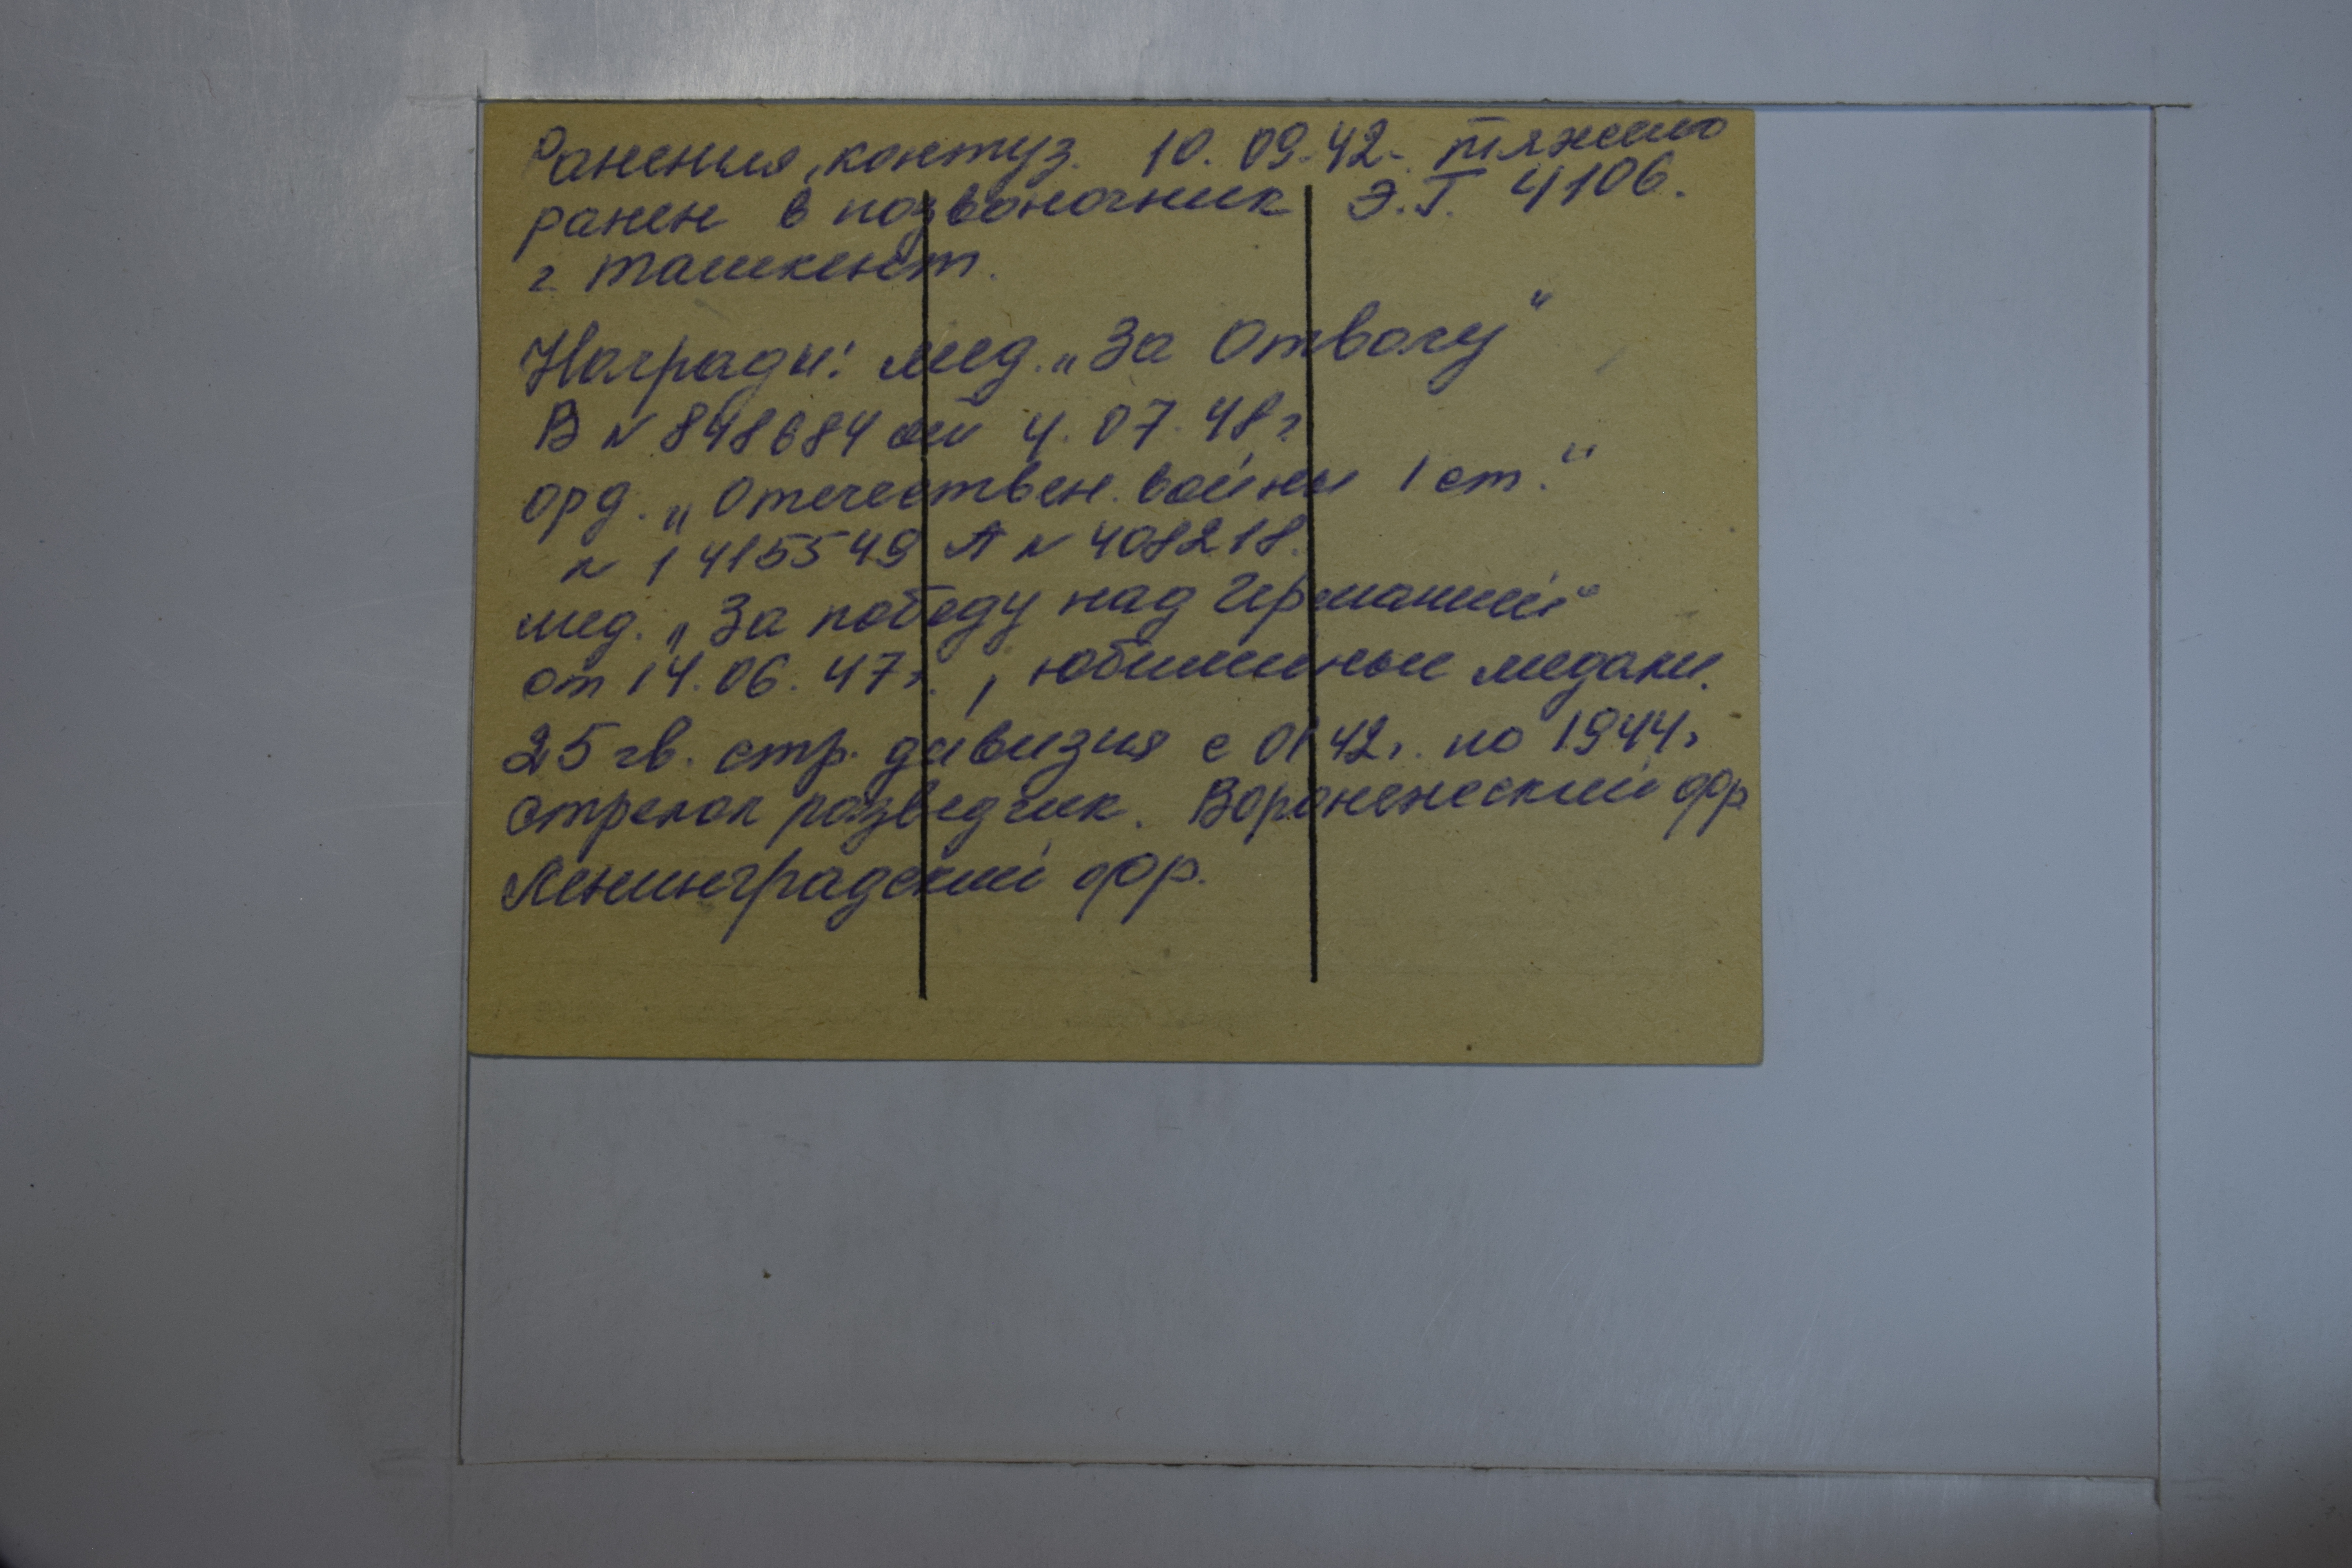 Ранения, контуз. 10.09.42. тяжело
ранен в позвоночник Э.Г. 4106.
г. Ташкент.
Награды: мед. „За Отвагу"
В № 848684 от 4.07.48г
орд. „Отечествен. войны 1 ст."
№ 1415549 А № 408218.
мед. „За победу над Германией"
от 14.06.47г., юбилейные медали.
25 гв. стр. дивизия с 01 42г. по 1944г
стрелок разведчик. Воронежский фр
Ленинградский фр.